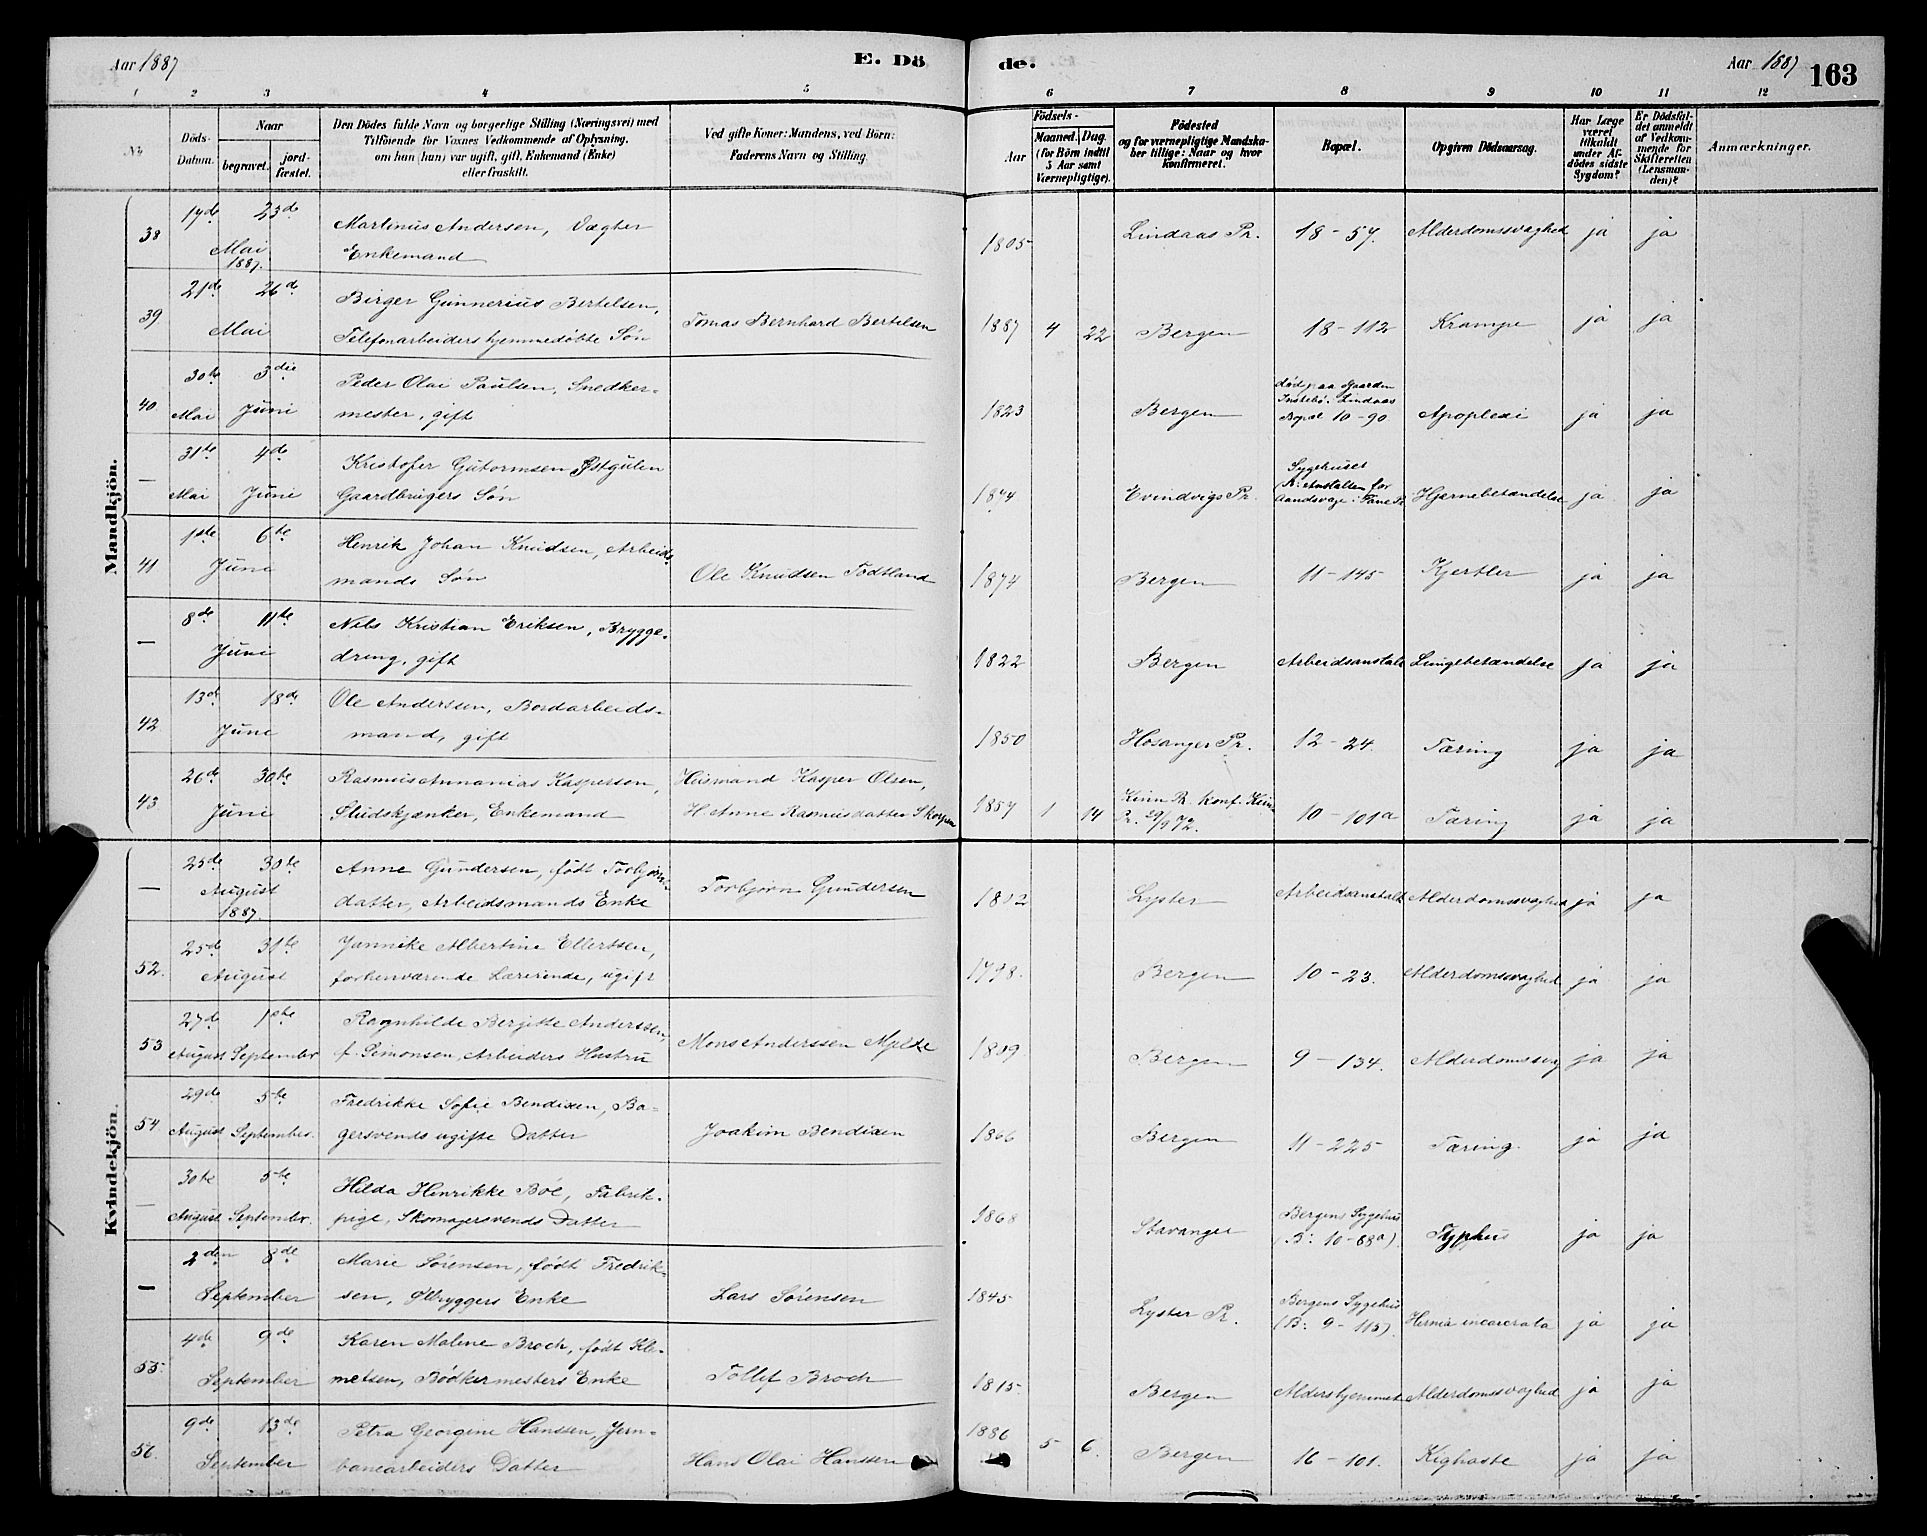 Aar 1887
E. Dö
de.
Aar 1887
163
1 2 3 4 5 6 7 8 9 10 11 12
No
Döds-Datum.
Naar
begravet.
jord-fæstet.
Den Dödes fulde Navn og borgerlige Stilling (Næringsvei) med
Tilföiende for Voxnes Vedkommende af Oplysning,
om han (hun) var ugift, gift, Enkemand (Enke)
eller fraskilt.
Ved gifte Koner: Mandens, ved Börn:
Faderens Navn og Stilling.
Födsels-
Aar
Maaned. Dag.
(for Börn indtil
5 Aar samt
Værnepligtige).
Födested
og for værnepligtige Mandska-
ber tillige: Naar og hvor
konfirmeret.
Bopæl.
Opgiven Dödsaarsag.
Har Læge
været
tilkaldt
under Af-
dödes sidste
Sygdom?
Er Dödsfal-
det anmeldt
af Vedkom-
mende for
Skifteretten
(Lensman-
den)?
Anmærkninger.
Mandkjön.
38 17de Mai 1887. 23de Martinus Andersen, Vægter
Enkemand 1805 Lindaas Pr. 18-57. Alderdomssvaghed ja ja
39 21de 26de Mai Birger Gunnerius Bertelsen,
Telefonarbeiders hjemmedöbte Sön Tomas Bernhard Bertelsen 1887 4 22 Bergen 18-112 Krampe ja ja
40. 30te Mai 3die Juni Peder Olai Paulsen, Snedker-
mester, gift 1823 Bergen död paa Gaarden
Lindaas
Bopæl 10-90 Apoplexi ja ja
— 31te Mai 4de Juni Kristofer Gutormsen Østgulen
Gaardbrugers Sön 1874 Evindvigs Pr. Sygehuset
Anstalten for
Aandsvage i Fane Pr Hjernebetændelse ja ja
41 1ste 6te Juni Henrik Johan Knudsen, Arbeids-
mands Sön Ole Knudsen Todtland 1874 Bergen 11-145 Kjertler ja ja
— 8de 11te Juni Nils Kristian Eriksen, Brygge-
dreng, gift 1822 Bergen Arbeidsanstalt Lungebetændelse ja ja
42 13de 18de Juni Ole Anderssen, Bordarbeids-
mand, gift 1850 Hosanger Pr. 12-24. Tæring ja ja
43 26de 30te Juni Rasmus Annanias Kaspersen,
Enkemand Husmand Kasper Olsen,
H. Anne Rasmusdatter Skorpen 1857 1 14 Kinn Pr. Konf. Kinn
Pr. 29/9 72. 10-101a Tæring ja ja
Kvindekjön.
— 25de 30te August 1887. Anne Gundersen, født Torbjörns-
datter, Arbeidsmands Enke Torbjörn Gundersen 1802 Lyster Arbeidsanstalt Alderdomssvaghed ja ja
52. 25de 31te August Jannike Albertine Ellertsen,
forhenværende Lærerinde, ugift 1798. Bergen 10-23. Alderdomssvaghed ja ja
53 27de August 1ste September Ragnhilde Bergitte Anderssen,
f. Simonsen, Arbeiders Hustru Mons Anderssen Mjelde 1809 Bergen 9-134. Alderdomssvag ja ja
54 29de August 5te September. Fredrikke Sofie Bendixen, Ba-
gersvends ugifte Datter Joakim Bendixen 1866 Bergen 11-225 Tæring. ja ja
— 30te August 5te Septembr. Hilda Henrikke Böe, Fabrik-
pige, Skomagersvends Datter 1868 Stavanger Bergens Sygehus
(B: 10-88a). Typhus ja ja
— 2den 8de September Marie Sörensen, født Fredrik-
sen, Ølbryggers Enke Lars Sörensen 1845 Lyster Pr. Bergens Sygehus
(B: 9-115). Hernia incarcerata ja ja
55. 4de 9de September Karen Malene Broch, født Kle-
metsen, Bödkermesters Enke Tollef Broch 1815. Bergen Aldershjemmet Alderdomssvaghed ja ja
56. 9de 13de September Petra Georgine Hanssen, Jern-
banearbeiders Datter Hans Olai Hanssen 1886 5 6. Bergen 16-101. Kighoste ja ja